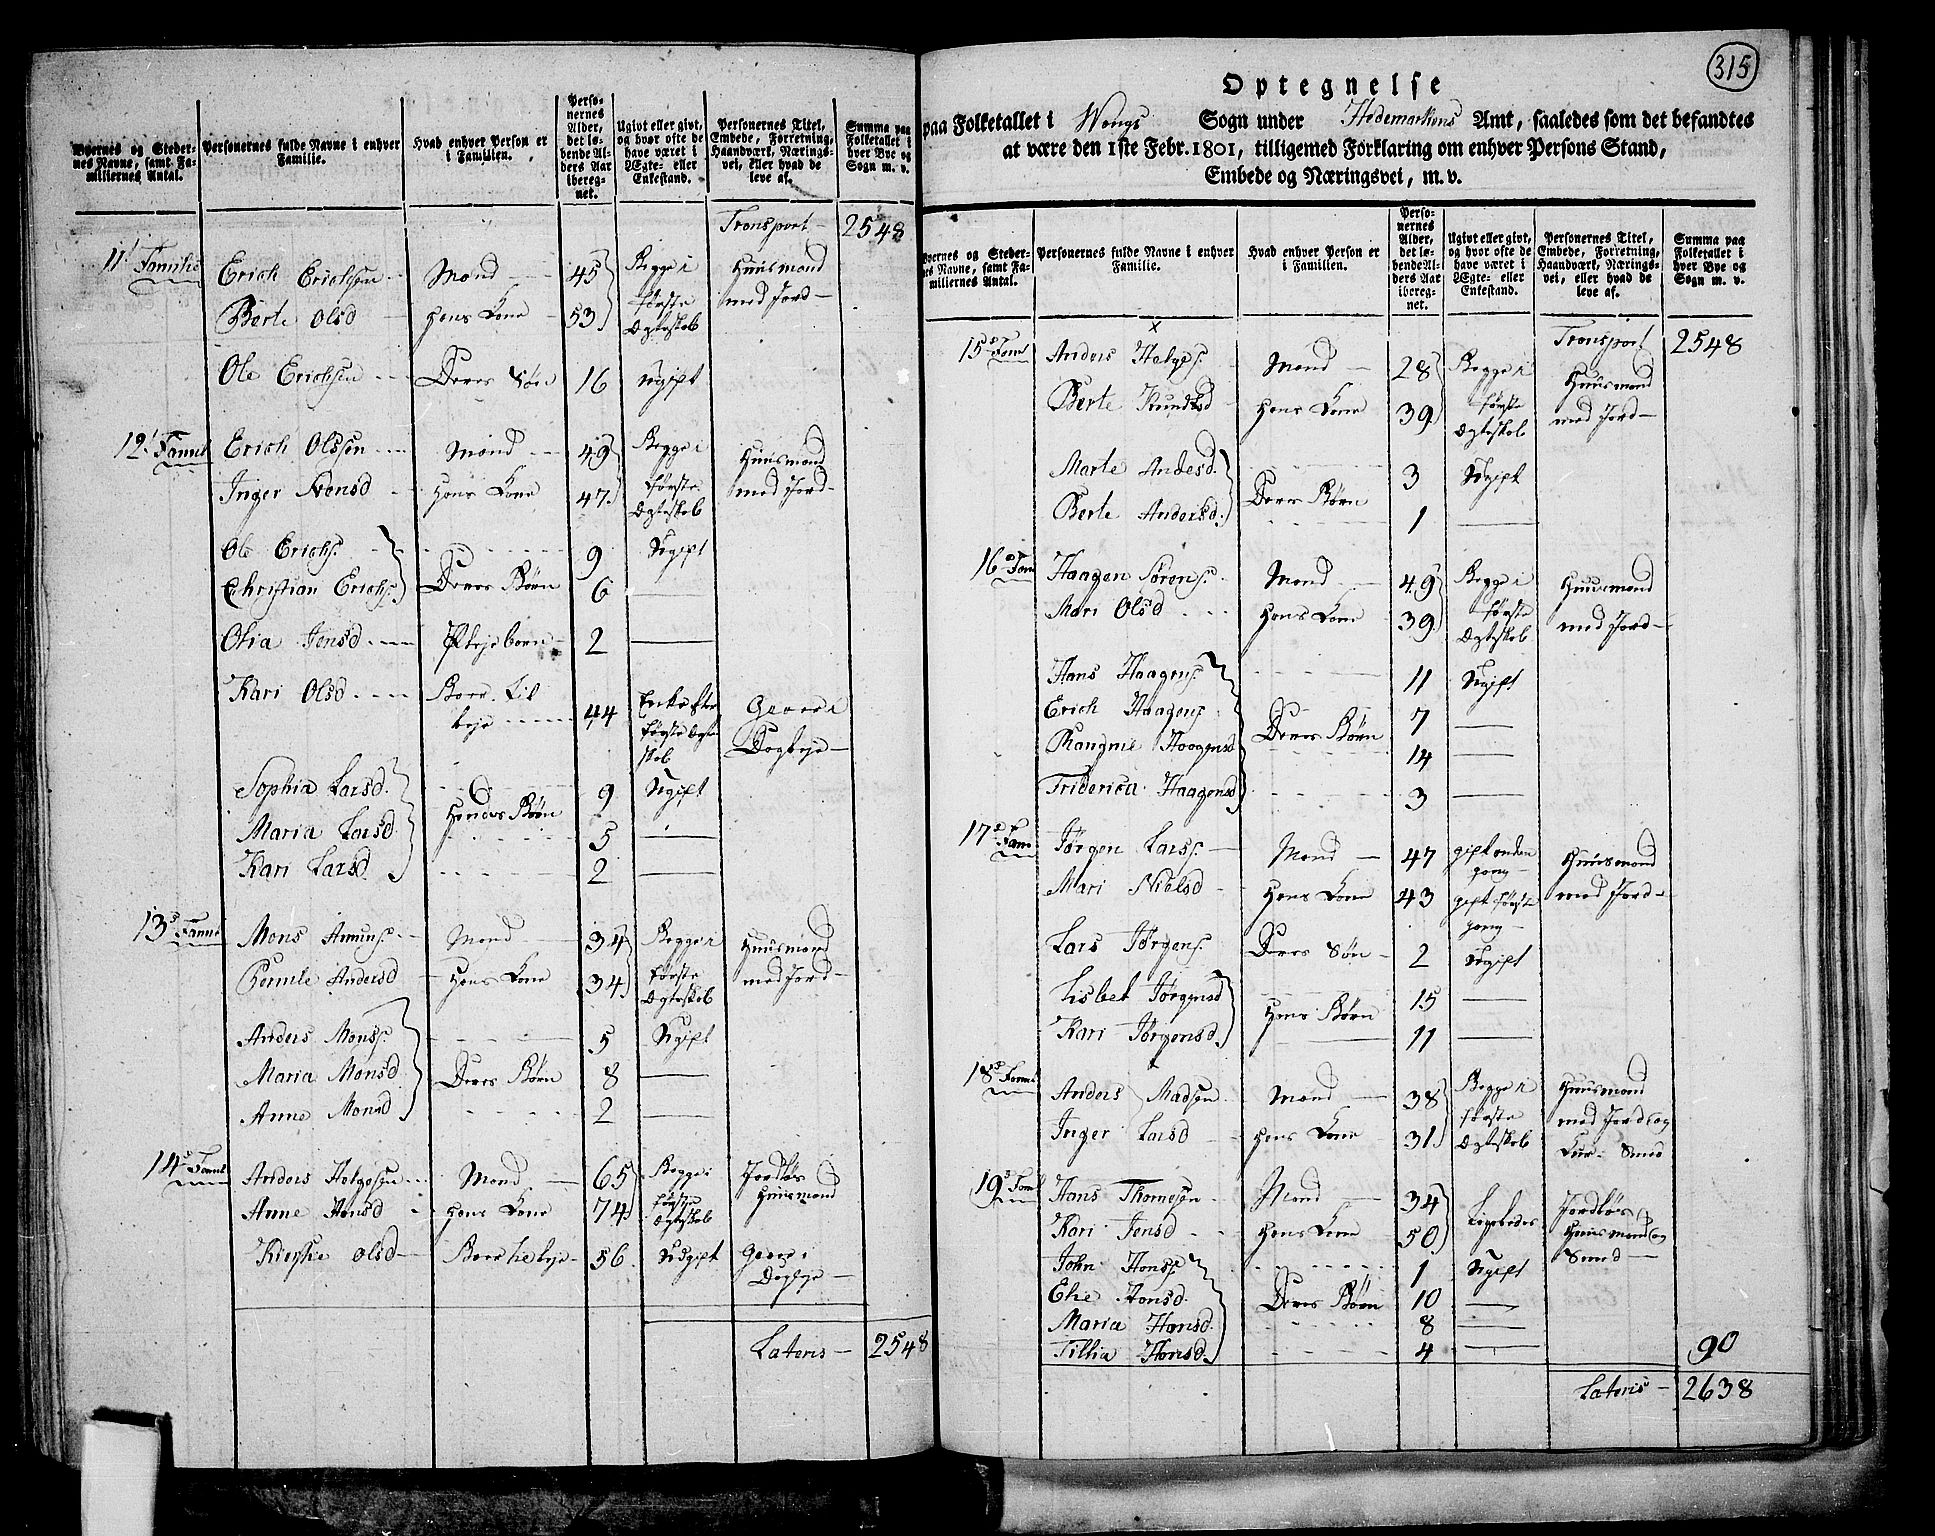 Byernes og Steder-
nes Navne, samt Fa-
miliernes Antal.
Personernes fulde Navne i enhver
Familie.
Hvad enhver Person er
i Familien.
Perso-
nernes
Alder,
det lø-
bende Al-
ders Aar
ibereg-
net.
Ugivt eller givt,
og hvor ofte de
have været i
Ægte- eller
Enkestand.
Personernes Titel,
Embede, Forretning,
Haandværk, Nærings-
vei, eller hvad de
leve af.
Summa paa
Folketallet i
hver Bye og
Sogn m. v.
Transport 2548
11' Familie
Erich Erichsen Mand 45 Begge i Huusmand
Berte Olsd hans Kone 53 første med Jord
Ægteskab
Ole Erichsen Deres Søn 16 ugift
12' Famil
Erich Olssen Mand 49 Begge i Huusmand
Inger Svensd hans Kone 47 første med Jord
Ægteskab
Ole Erichs. 9 Ugift
Christian Erichs. Deres Børn 6
Olia Jensd Plejebarn 2
Kari Olsd Boer til 44 Enke efter Gaaer i
leje første Ægte- Dagleje
skab
Sophia Larsd. 9 Ugift
Maria Larsd. Hendes Børn 5
Kari Larsd 2
13 Famil
Mons Amuns. Mand 34 Begge i Huusmand
Andersd hans Kone 34 første med Jord
Ægteskab
Anders Monss. 5 Ugift
Maria Monsd Deres Børn 8
Anne Monsd 2
14 Famil
Anders Helgesen Mand 65 Begge i Jordløs
Anne Hansd hans Kone 74 første Huusmand
Ægteskab
Kirstie Olsd Boer til leje 56 Ugift Gaaer i
Dagleje
Lateris 2548
315
Optegnelse
paa Folketallet i Wangs Sogn under Hedemarkens Amt, saaledes som det befandtes
at være den 1ste Febr. 1801, tilligemed Forklaring om enhver Persons Stand,
Embede og Næringsvei, m. v.
Byernes og Steder-
nes Navne, samt Fa-
miliernes Antal.
Personernes fulde Navne i enhver
Familie.
Hvad enhver Person er
i Familien.
Perso-
nernes
Alder,
det lø-
bende Al-
ders Aar
ibereg-
net.
Ugivt eller givt,
og hvor ofte de
have været i
Ægte- eller
Enkestand.
Personernes Titel,
Embede, Forretning,
Haandværk, Nærings-
vei, eller hvad de
leve af.
Summa paa
Folketallet i
hver Bye og
Sogn m. v.
Transport 2548
15 Faml
Anders Helges. Mand 28 Begge i Huusmand
Berte Knudsd hans Kone 39 første med Jord
Ægteskab
Marte Andesd. 3 Ugift
Berte Andersd. Deres Børn 1
16 Fam
Haagen Sørens. Mand 49 Begge i Huusmand
Mari Olsd hans Kone 39 første med Jord
Ægteskab
Hans Haagens. 11 Ugift
Erich Haagens. Deres Børn 7
Rangnie Haagensd 14
Friderica Haagensd 3
17 Fam
Jørgen Larss. Mand 47 gift anden Huusmand
gang
Mari Nielsd hans Kone 43 gift første med Jord
gang
Lars Jørgens. Deres Søn 2 Ugift
Lisbet Jørgensd 15
Kari Jørgensd. hans Børn 11
18 Faml
Anders Madsen Mand 38 Begge i Huusmand
Inger Larsd hans Kone 31 første med Jord og
Ægteskab Smed
19 Faml
Hans Thomesen Mand 34 Ligeledes Jordløs
Kari Jensd hans Kone 50 Huusmand og
John Hanss. 1 Ugift Smed
Else Hansd. Deres Børn 10
Maria Hansd. 8
Tillia Hansd. 4
90
Lateris 2638